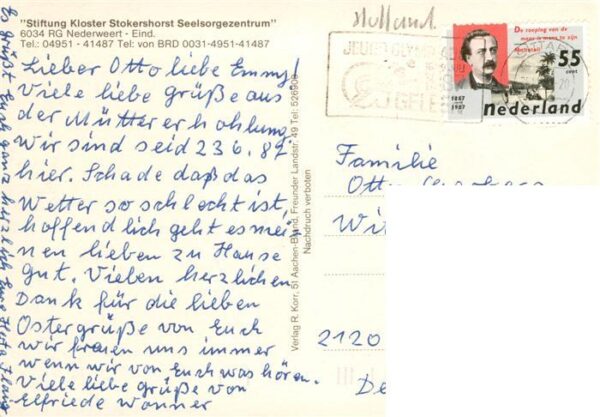 "Stiftung Kloster Stokershorst Seelsorgezentrum"
6034 RG Nederweert - Eind.
Tel.: 04951 - 41487 Tel: von BRD 0031-4951-41487
Lieber Otto liebe Emmy!
Viele liebe grüße aus
der Müttererhohlung
wir sind seid 23 6. 87
hier. Schade daß das
Wetter so schlecht ist,
hoffendlich geht es mei-
nen lieben zu Hause
gut. Vielen herzlichen
Dank für die lieben
Ostergrüße von Euch
wir freuen uns immer
wenn wir von Euch was hören.
Viele liebe grüße von
Elfriede Wanner
Es grüßt Euch ganz herzlich Eure Herta
Verlag R. Korr, 51 Aachen-Brand, Freunder Landstr. 49 Tel: 526909
Nachdruch verboten
Holland
De roeping van de
mens is mens te zijn
Multatuli
55
cent
1887
1987
nederland
Familie
Otto
Wi
2120
De